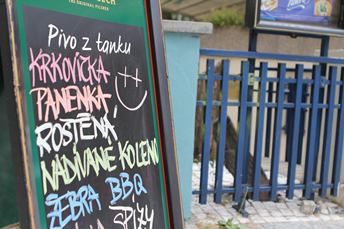 THE ORIGINAL PILSNER
Pivo z tanku
KRKOVIČKA
PANENKA
ROŠTĚNÁ
NADÍVANÉ KOLENO
ŽEBRA BBQ
ŠPÍZY